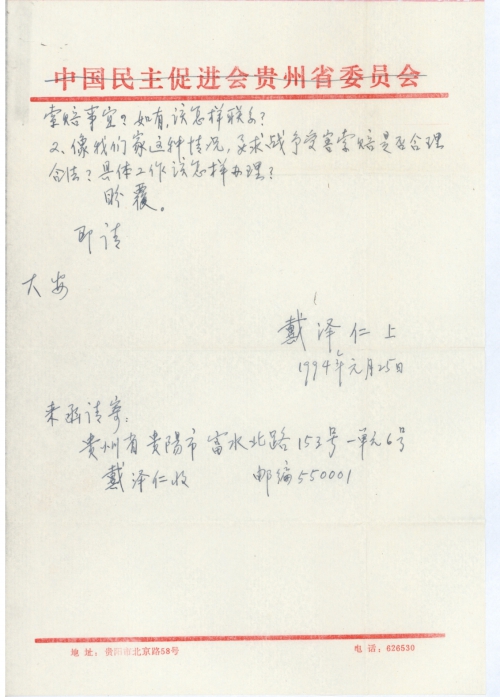 中国民主促进会贵州省委员会
索赔事宜？如有，该怎样联系？
2、像我们家这种情况，要求战争受害索赔是否合理
合法？具体工作该怎样办理？
盼覆。
即请
大安
戴泽仁上
1994年元月25日
来函请寄：
贵州省贵陽市富水北路153号一单元6号
戴泽仁收 邮编550001
地址：贵阳市北京路58号 电话：626530